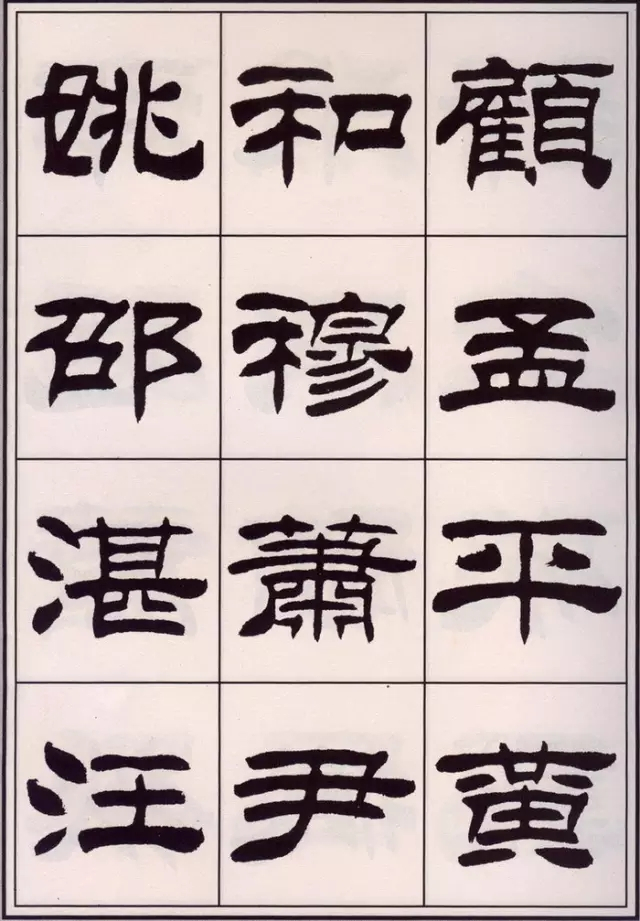 顧孟平黃
和穆蕭尹
姚邵湛汪